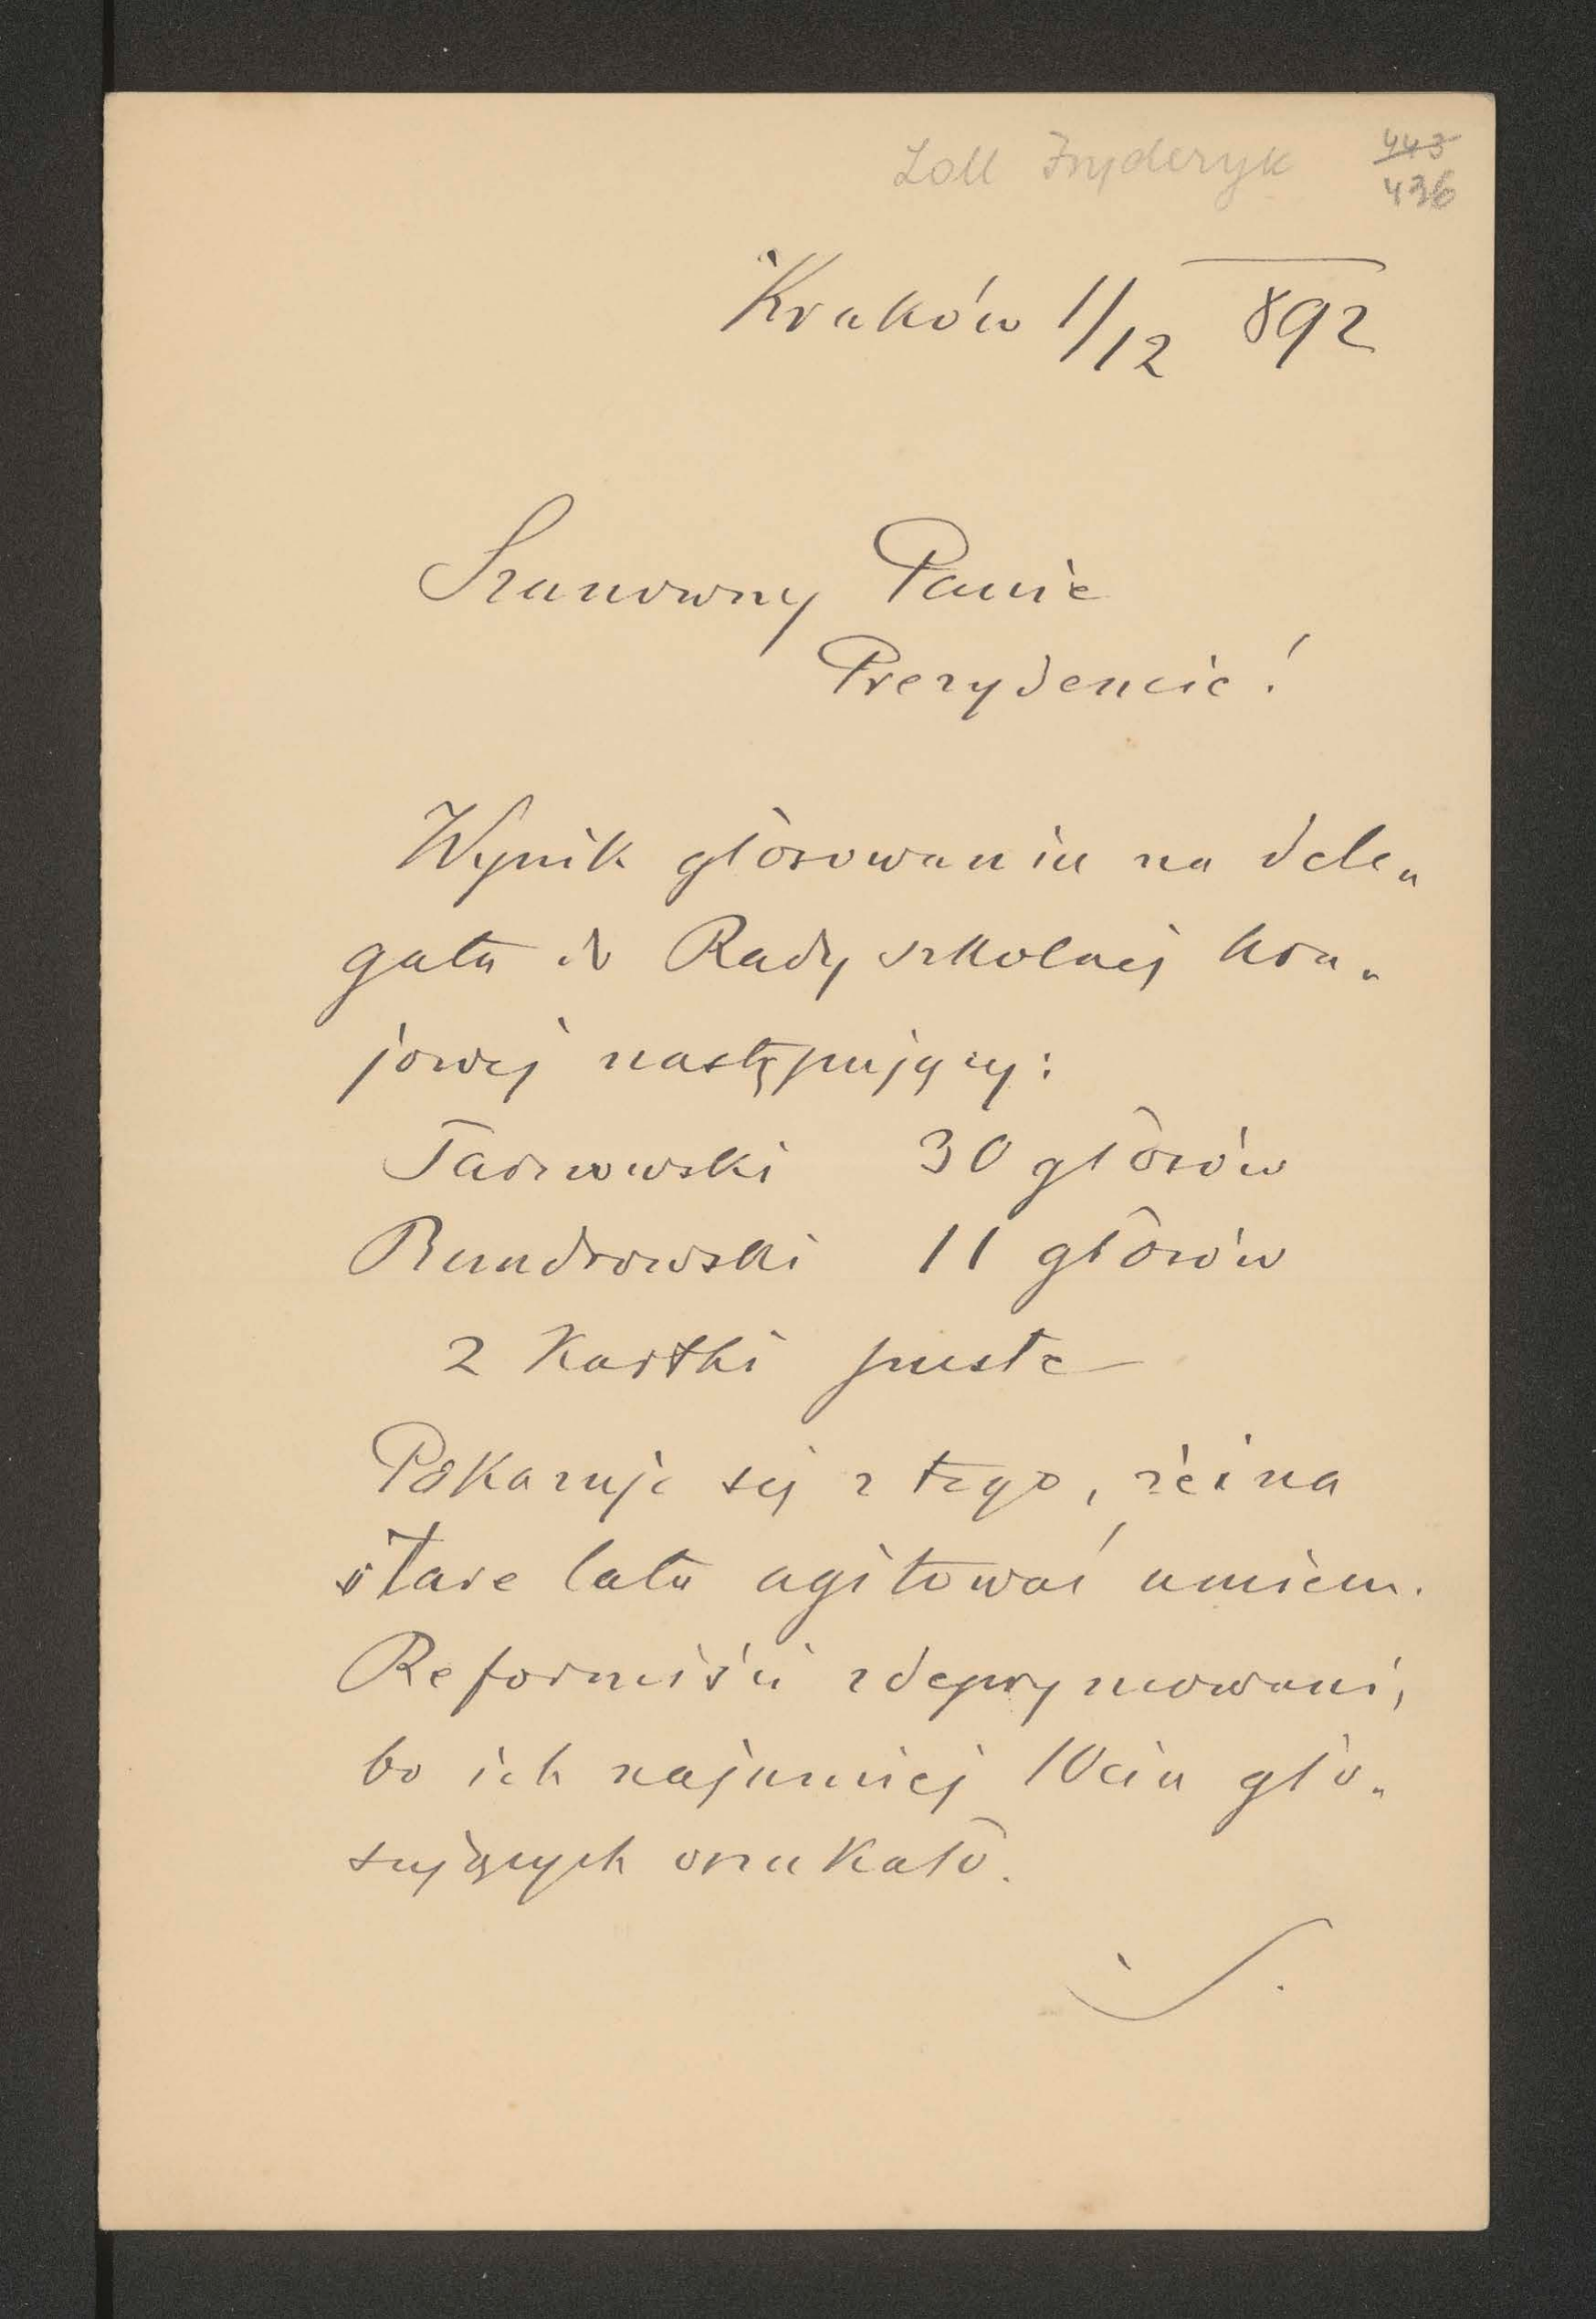 Zoll Fryderyk
443
436
Kraków 1/12 892
Szanowny Panie
Prezydencie!
Wynik głosowania na dele„
gata do Rady szkolnej kra„
jowej następujący:
Tarnowski 30 głosów
Bandrowski 11 głosów
2 Kartki puste
Pokazuje się z tego, że i na
stare lata agitować umiem.
Reformiści zdeprymowani,
bo ich najmniej 10ciu gło„
sujących oszukało.